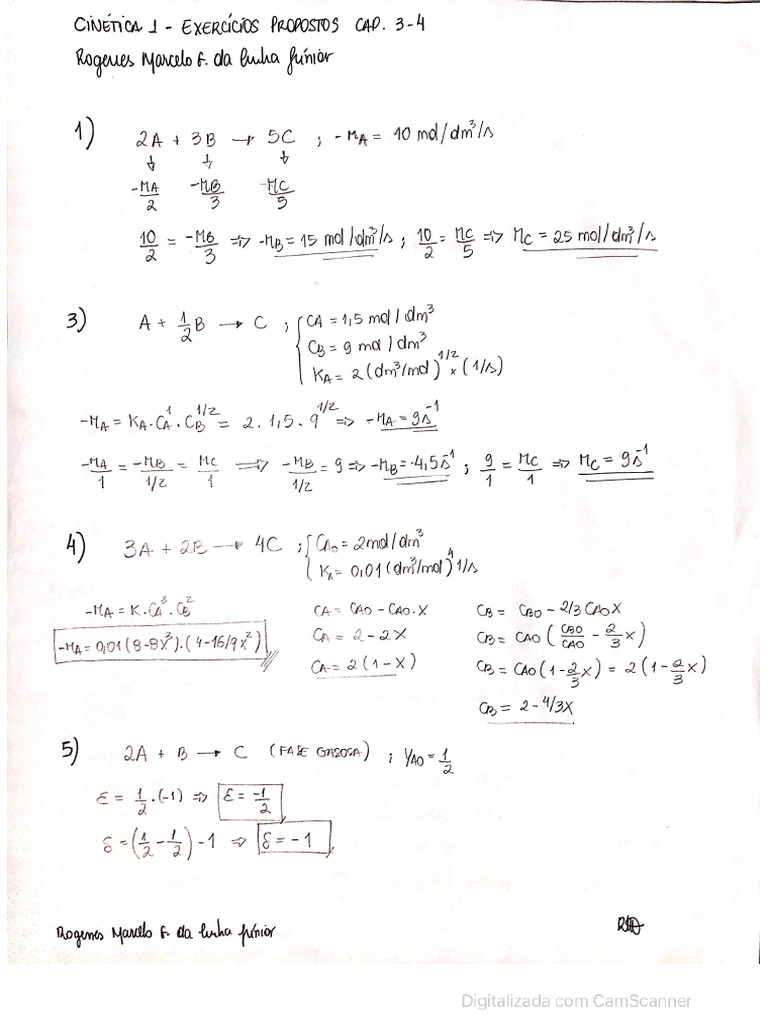 CINÉTICA 1 - EXERCÍCIOS PROPOSTOS CAP. 3-4
Rogenes Marcelo F. da Cunha Júnior
1) 2A + 3B → 5C ; -rA = 10 mol/dm³/s
↓ ↓ ↓
-rA/2 -rB/3 -rC/5
10/2 = -rB/3 => -rB = 15 mol/dm³/s ; 10/2 = rC/5 => rC = 25 mol/dm³/s
3) A + 1/2 B → C ; { CA = 1,5 mol/dm³
CB = 9 mol/dm³
KA = 2 (dm³/mol)^1/2 × (1/s)
-rA = KA.CA^1.CB^1/2 = 2. 1,5. 9^1/2 => -rA = 9s⁻¹
-rA/1 = -rB/1/2 = rC/1 => -rB/1/2 = 9 => -rB = -4,5s⁻¹ ; 9/1 = rC/1 => rC = 9s⁻¹
4) 3A + 2B → 4C ; { CA0 = 2mol/dm³
KA = 0,01 (dm³/mol)⁴ 1/s
-rA = K.CA³.CB²
-rA = 0,01(8-8X³).(4-16/9X²)
CA = CA0 - CA0.X
CA = 2 - 2X
CA = 2(1-X)
CB = CB0 - 2/3 CA0X
CB = CA0 (CB0/CA0 - 2/3 X)
CB = CA0(1-2/3 X) = 2(1-2/3 X)
CB = 2 - 4/3X
5) 2A + B → C (FASE GASOSA) ; YA0 = 1/2
ε = 1/2 .(-1) => ε = -1/2
δ = (1/2 - 1/2) - 1 => δ = -1
Rogenes Marcelo F. da Cunha Júnior
Digitalizada com CamScanner